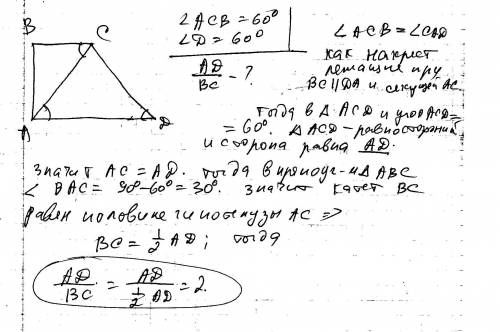 B C
A D
∠ACB = 60°
∠D = 60°
AD/BC - ?
∠ACB = ∠CAD
как накрест
лежащие при
BC || DA и секущей AC.
тогда в △ACD и угол ACD =
= 60°. △ACD - равносторонний
и сторона равна AD.
значит AC = AD. тогда в прямоуг-м △ABC
∠BAC = 90° - 60° = 30°. значит катет BC
равен половине гипотенузы AC ⇒
BC = 1/2 AD; тогда
AD/BC = AD/(1/2 AD) = 2.